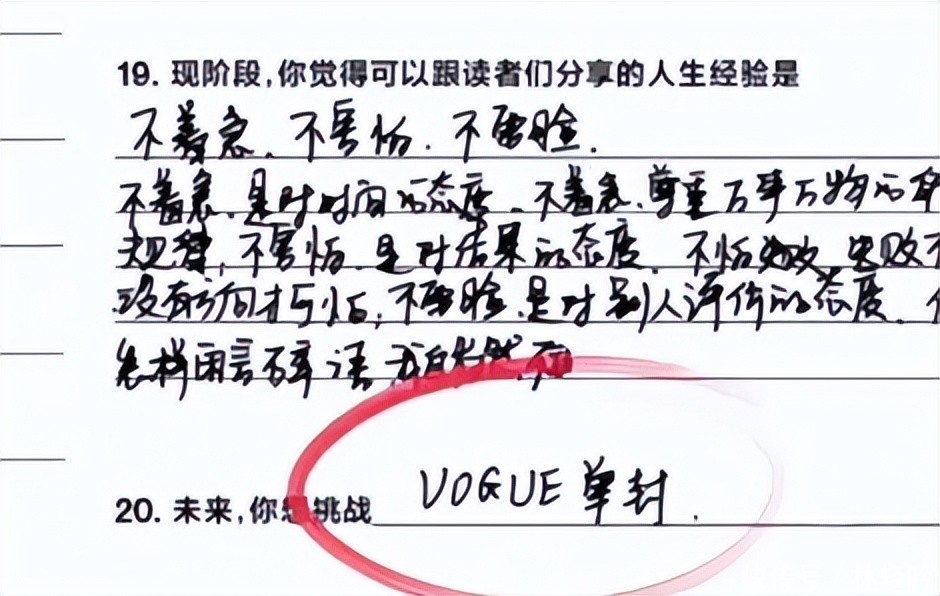 19. 现阶段,你觉得可以跟读者们分享的人生经验是
不着急、不害怕.不要脸.
不着急.是对时间的态度.不着急.尊重万事万物的
规律,不害怕.是对结果的态度.不怕失败,失败不
没有方向才可怕,不要脸.是对别人评价的态度.
怎样闲言碎语 我自岿然不
20. 未来,你想挑战 VOGUE单封.